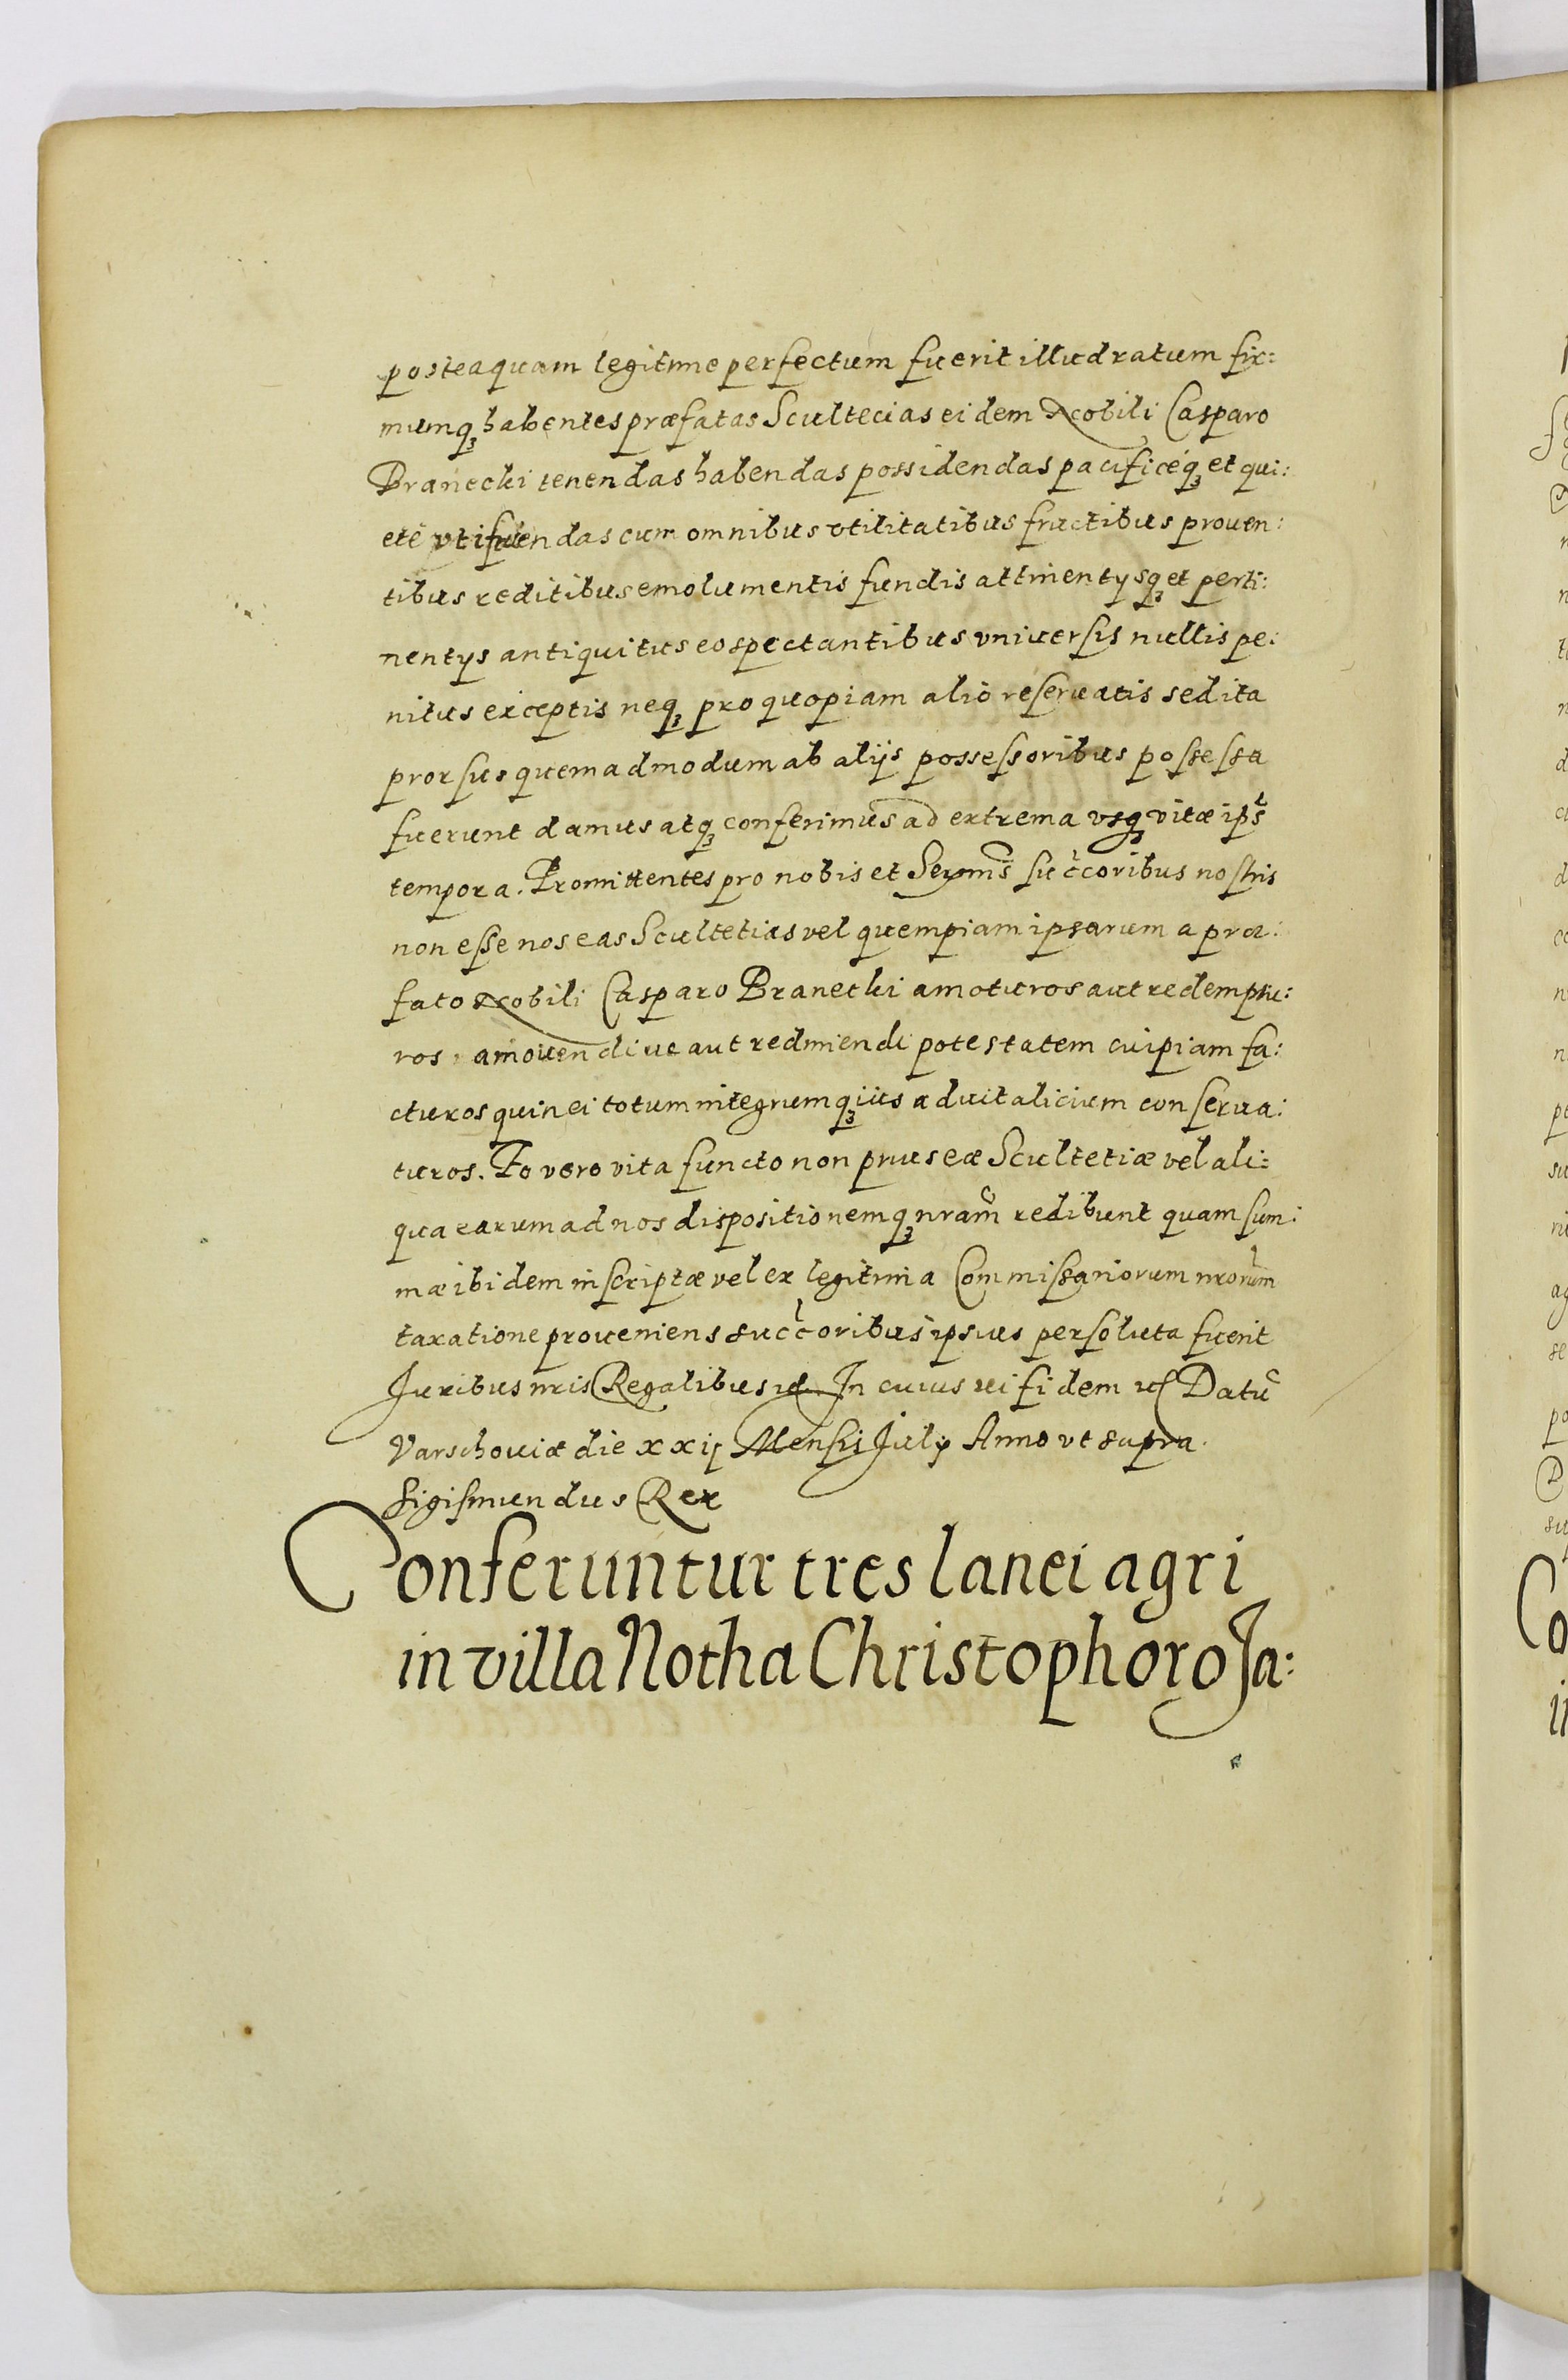 posteaquam legitime perfectum fuerit illud ratum fir:
mumqꝫ habentes præfatas Scultecias eidem Nobili Casparo
Branecki tenendas habendas possidendas pacificéqꝫ et qui:
etè vtifruendas cum omnibus vtilitatibus fructibus prouen:
tibus reditibus emolumentis fundis attinentysqꝫ et perti:
nentys antiquitus eo spectantibus vniuersis nullis pe:
nitus exceptis neqꝫ pro quopiam alio reseruatis sed ita
prorsus quemadmodum ab alijs possessoribus possessa
fuerunt damus atqꝫ conferimus ad extrema vsqꝫ vitæ ips̃
tempora. Promittentes pro nobis et Serm̃is succ̃oribus nostris
non esse nos eas Scultetias vel quempiam ipsarum a præ:
fato Nobili Casparo Branecki amoturos aut redemptu:
ros, amouendi ue aut redimendi potestatem cuipiam fa:
cturos quin ei totum integrumqꝫ ius aduitalicium conserua:
turos. Eo vero vita functo non prius eæ Scultetiæ vel ali:
qua earum ad nos dispositionemqꝫ nram̃ redibunt quam sum:
mæ ibidem inscriptæ vel ex legitima Commissariorum nrorum̃
taxatione proueniens succ̃oribus ipsius persoluta fuerit
Juribus nris Regalibus In cuius rei fidem Datũ
Varschouiæ die xxij Mensis July Anno vt supra.
Sigismundus Rex
Conferuntur tres lanei agri
in villa Notha Christophoro Ja: